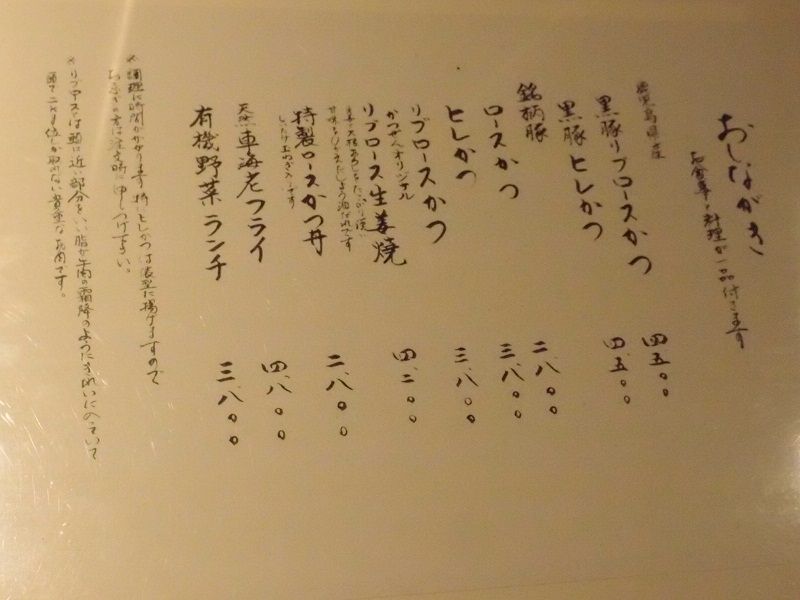 おしながき
お食事と料理が一品付きます
鹿児島県産
黒豚リブロースかつ 四、五〇〇
黒豚ヒレかつ 四、五〇〇
銘柄豚
ロースかつ 二、八〇〇
ヒレかつ 三、八〇〇
リブロースかつ 三、八〇〇
かつぜんオリジナル
リブロース生姜焼 四、二〇〇
特製ロースかつ丼 二、八〇〇
しいたけ玉ねぎ入りです
天然車海老フライ 四、八〇〇
有機野菜ランチ 三、八〇〇
※調理に時間がかかります。特にヒレかつは俵型に揚げますので
お急ぎの方は注文時に申しつけ下さい。
※リブロースは頭に近い部分をいい脂が牛肉の霜降のようにきれいにのっていて
頭で二kg位しか取れない貴重なお肉です。